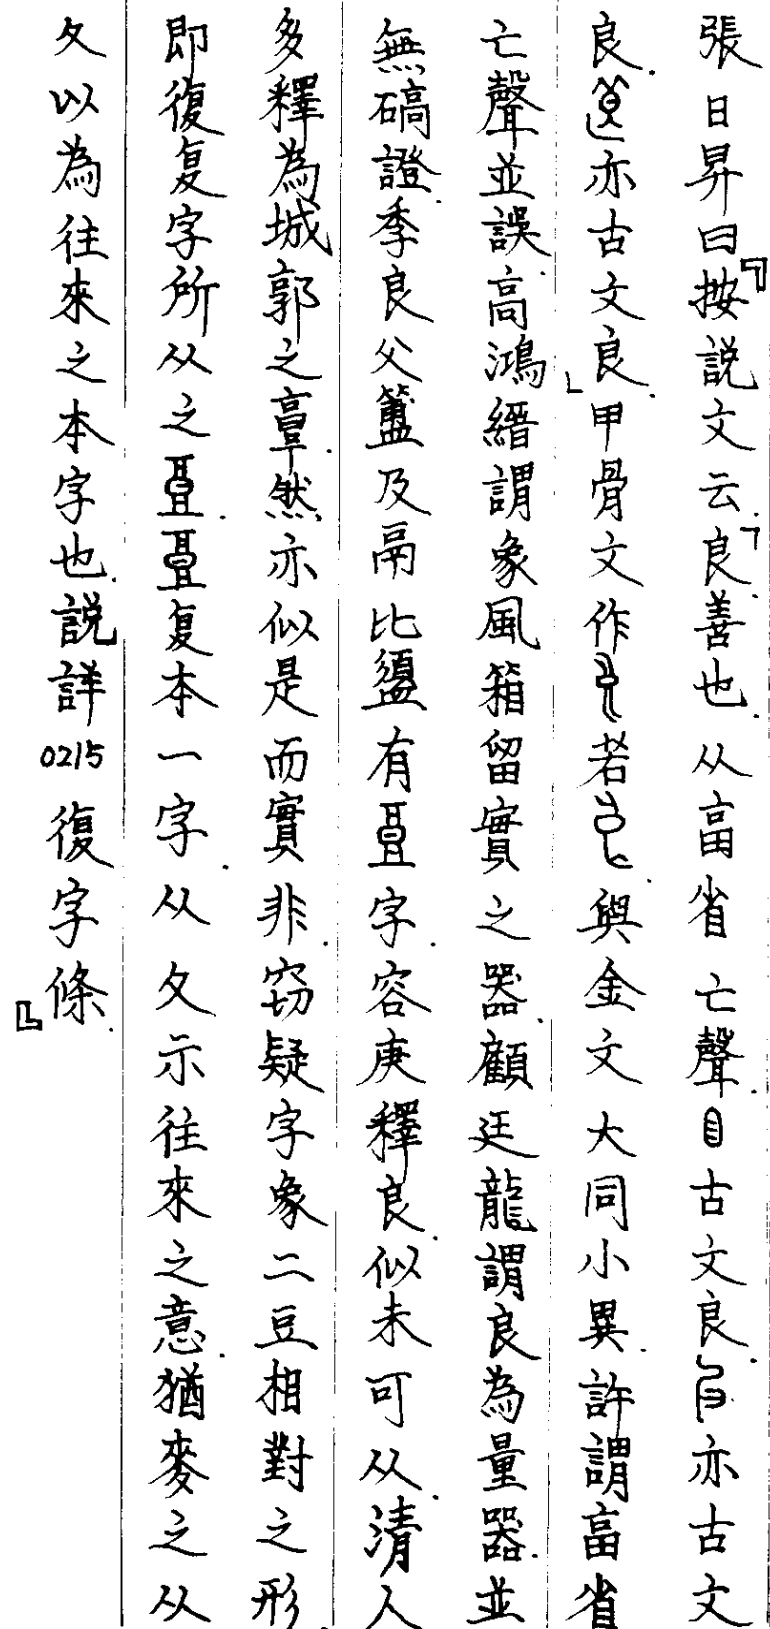 張日昇曰『按説文云「良善也.从畗省亡聲.目古文良.𥃩亦古文
良.𡇌亦古文良」.甲骨文作若.與金文大同小異.許謂畗省
亡聲並誤.高鴻縉謂象風箱留實之器.顧廷龍謂良為量器.並
無碻證.季良父簠及鬲比盨有字.容庚釋良.似未可从.清人
多釋為城郭之𩫏.然亦似是而實非.窃疑字象二豆相對之形.
即復复字所从之.复本一字.从夂示往來之意.猶麥之从
夂以為往來之本字也.説詳0215復字條.』